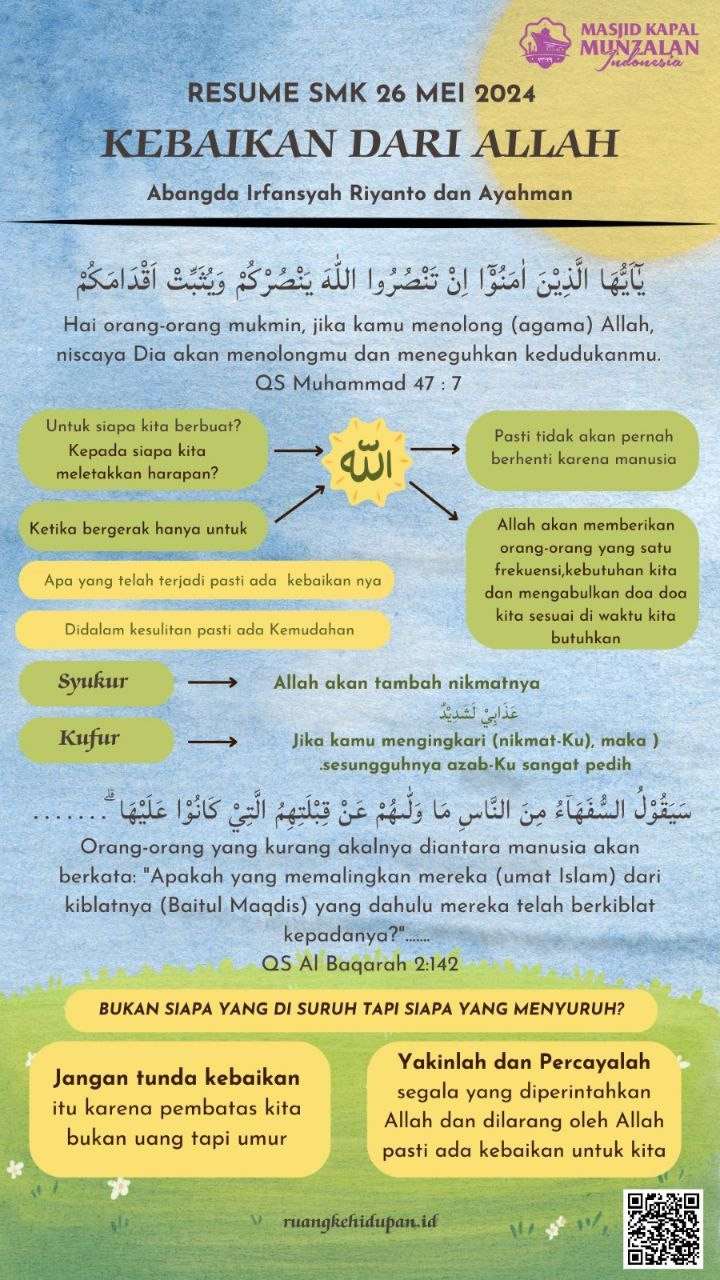 MASJID KAPAL
MUNZALAN
Indonesia
RESUME SMK 26 MEI 2024
KEBAIKAN DARI ALLAH
Abangda Irfansyah Riyanto dan Ayahman
يٰٓاَيُّهَا الَّذِيْنَ اٰمَنُوْٓا اِنْ تَنْصُرُوا اللّٰهَ يَنْصُرْكُمْ وَيُثَبِّتْ اَقْدَامَكُمْ
Hai orang-orang mukmin, jika kamu menolong (agama) Allah,
niscaya Dia akan menolongmu dan meneguhkan kedudukanmu.
QS Muhammad 47 : 7
Untuk siapa kita berbuat?
Kepada siapa kita
meletakkan harapan?
Ketika bergerak hanya untuk
الله
Pasti tidak akan pernah
berhenti karena manusia
Allah akan memberikan
orang-orang yang satu
frekuensi,kebutuhan kita
dan mengabulkan doa doa
kita sesuai di waktu kita
butuhkan
Apa yang telah terjadi pasti ada kebaikan nya
Didalam kesulitan pasti ada Kemudahan
Syukur
Allah akan tambah nikmatnya
Kufur
عَذَابِيْ لَشَدِيْدٌ
Jika kamu mengingkari (nikmat-Ku), maka )
.sesungguhnya azab-Ku sangat pedih
سَيَقُوْلُ السُّفَهَاۤءُ مِنَ النَّاسِ مَا وَلّٰىهُمْ عَنْ قِبْلَتِهِمُ الَّتِيْ كَانُوْا عَلَيْهَا ۗ.......
Orang-orang yang kurang akalnya diantara manusia akan
berkata: "Apakah yang memalingkan mereka (umat Islam) dari
kiblatnya (Baitul Maqdis) yang dahulu mereka telah berkiblat
kepadanya?".......
QS Al Baqarah 2:142
BUKAN SIAPA YANG DI SURUH TAPI SIAPA YANG MENYURUH?
Jangan tunda kebaikan
itu karena pembatas kita
bukan uang tapi umur
Yakinlah dan Percayalah
segala yang diperintahkan
Allah dan dilarang oleh Allah
pasti ada kebaikan untuk kita
ruangkehidupan.id